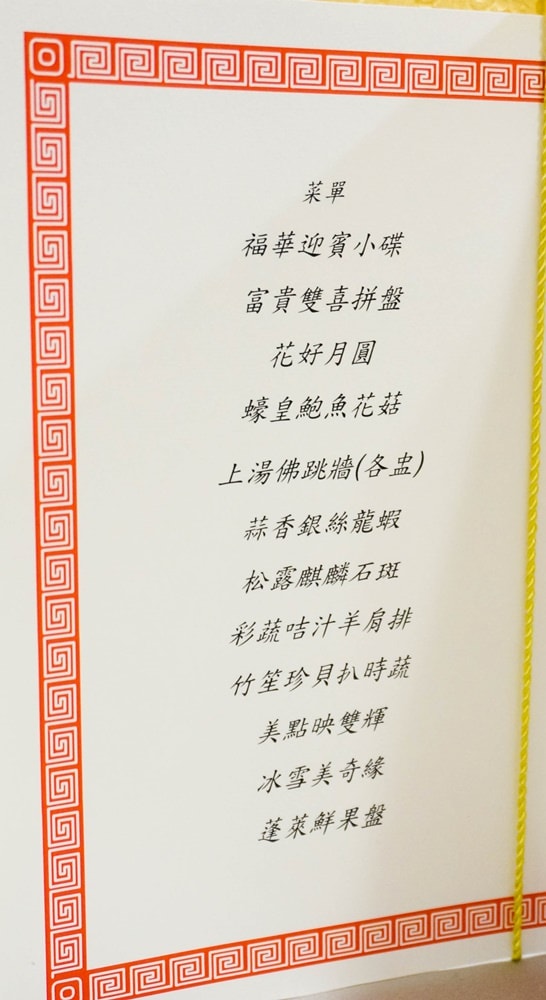 菜單
福華迎賓小碟
富貴雙喜拼盤
花好月圓
蠔皇鮑魚花菇
上湯佛跳牆(各盅)
蒜香銀絲龍蝦
松露麒麟石斑
彩蔬咭汁羊肩排
竹笙珍貝扒時蔬
美點映雙輝
冰雪美奇緣
蓬萊鮮果盤